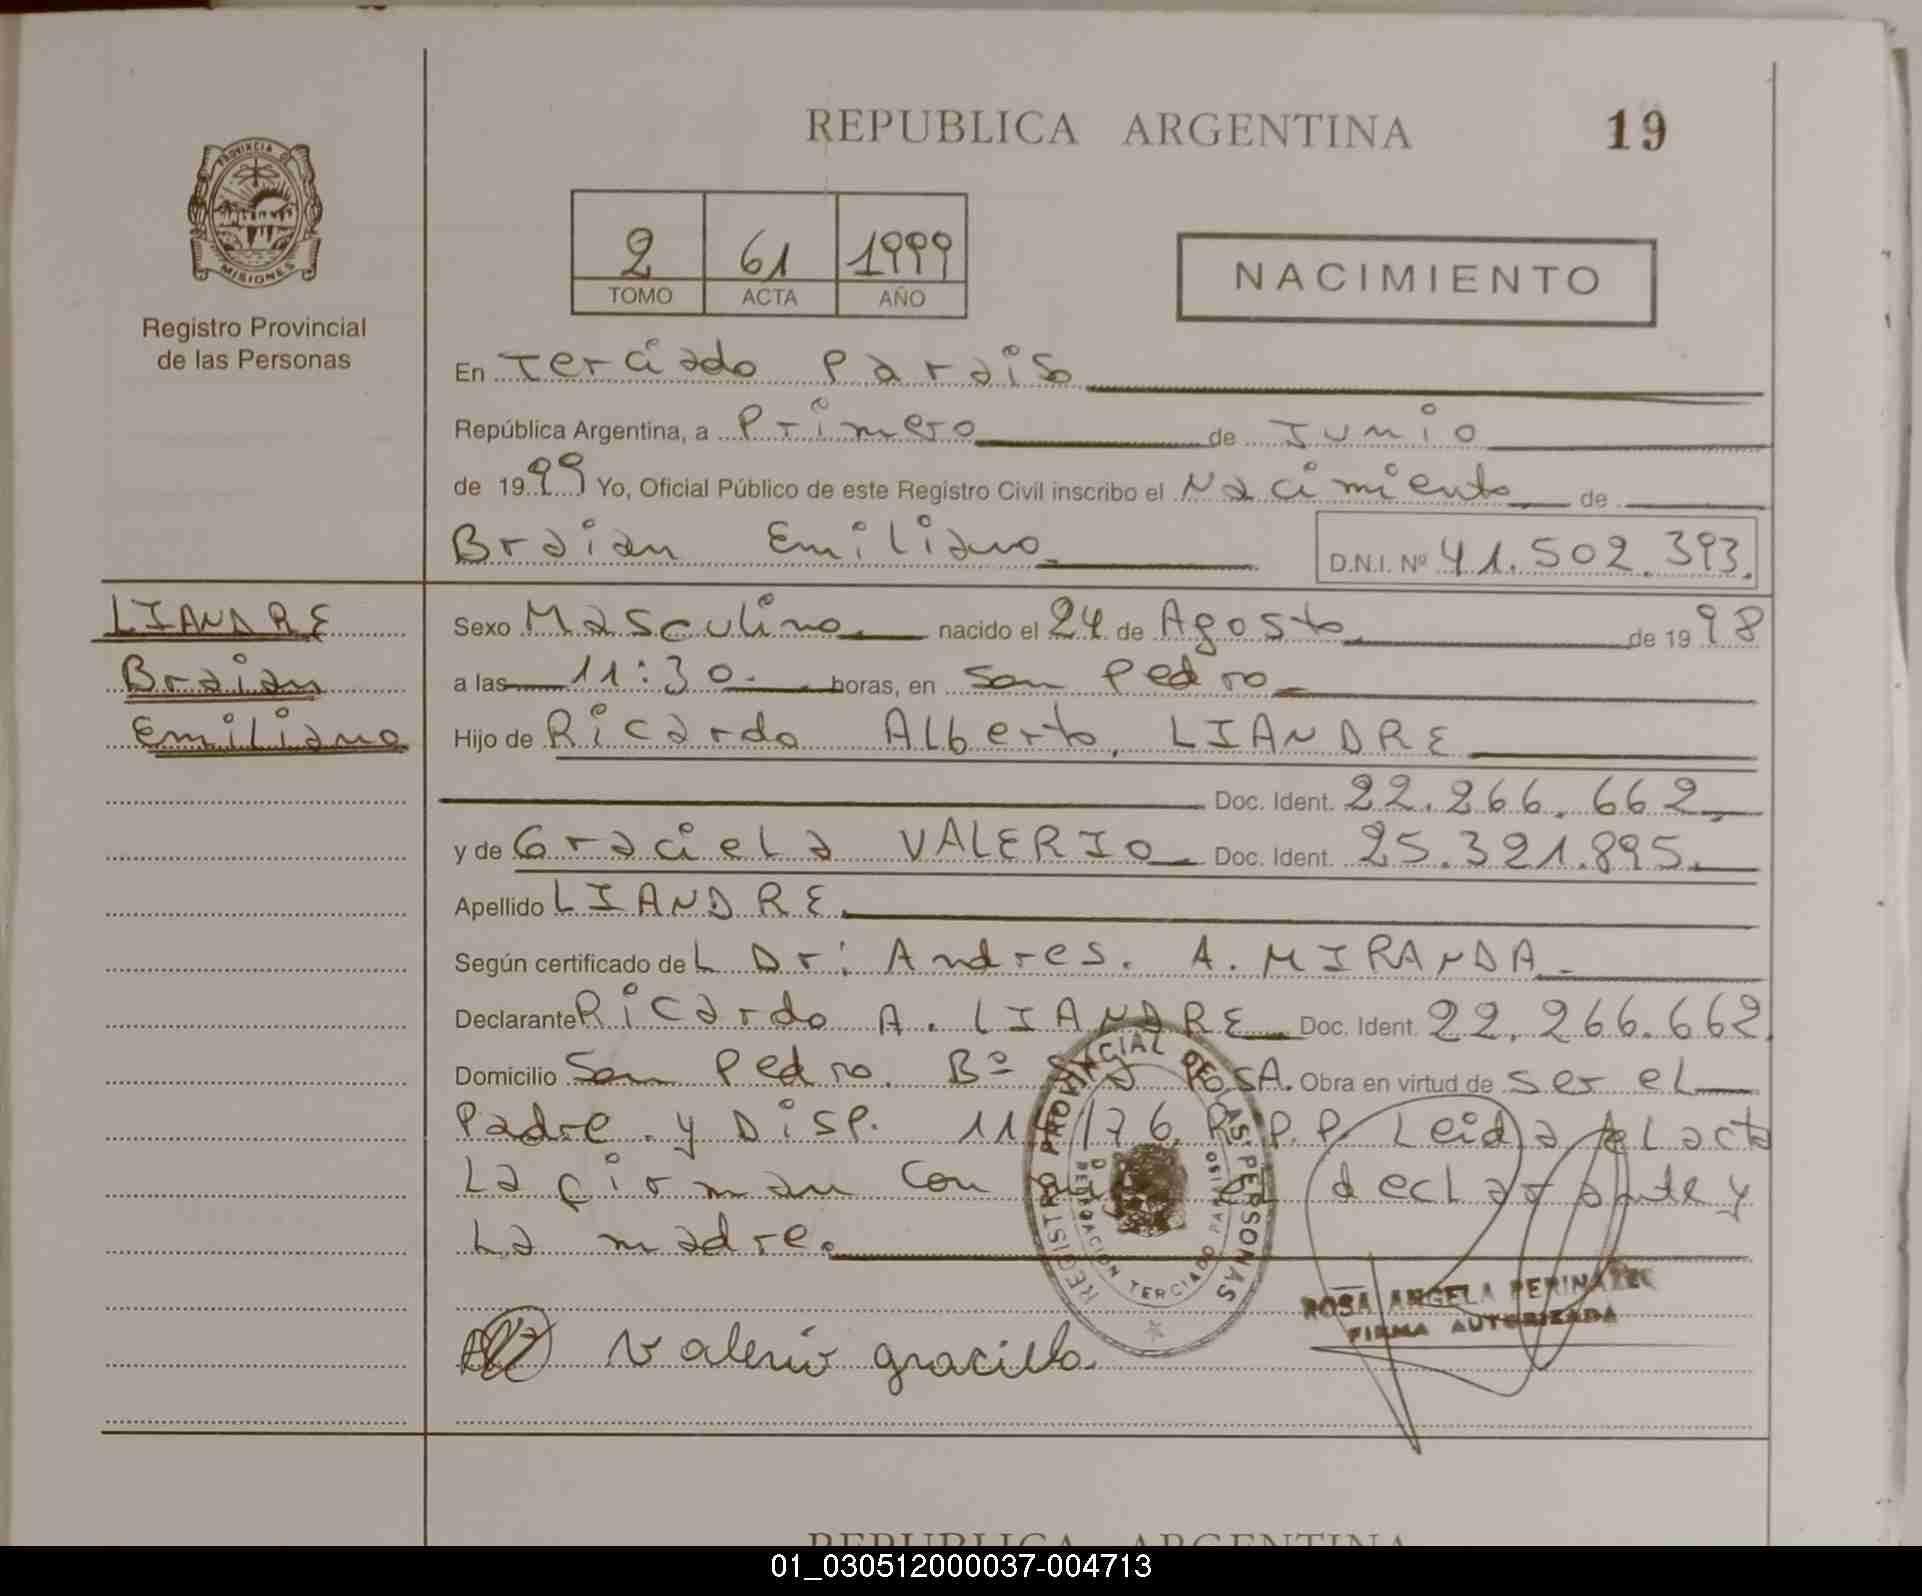 REPUBLICA ARGENTINA 19
PROVINCIA DE
MISIONES
Registro Provincial
de las Personas
2 61 1999
TOMO ACTA AÑO
NACIMIENTO
En Terciado Paraiso
República Argentina, a Primero de Junio
de 1999 Yo, Oficial Público de este Registro Civil inscribo el Nacimiento de
Braian Emiliano D.N.I. Nº 41.502.393.
LIANDRE
Braian
Emiliano
Sexo Masculino nacido el 24 de Agosto de 1998
a las 11:30. horas, en San Pedro
Hijo de Ricardo Alberto, LIANDRE
Doc. Ident. 22.266.662
y de Graciela VALERIO Doc. Ident. 25.321.895.
Apellido LIANDRE
Según certificado del Dr: Andres. A. MIRANDA
Declarante Ricardo A. LIANDRE Doc. Ident. 22.266.662.
Domicilio San Pedro. Bº POSA. Obra en virtud de ser el
Padre. y Disp. 116/76. R.P.P. Leida el acta
La firman con el declarante y
La madre.
REGISTRO PROVINCIAL DE LAS PERSONAS
DELEGACION TERCIADO PARAISO
ROSA ANGELA
FIRMA AUTORIZADA
Valerio graciela
REPUBLICA ARGENTINA
01_030512000037-004713